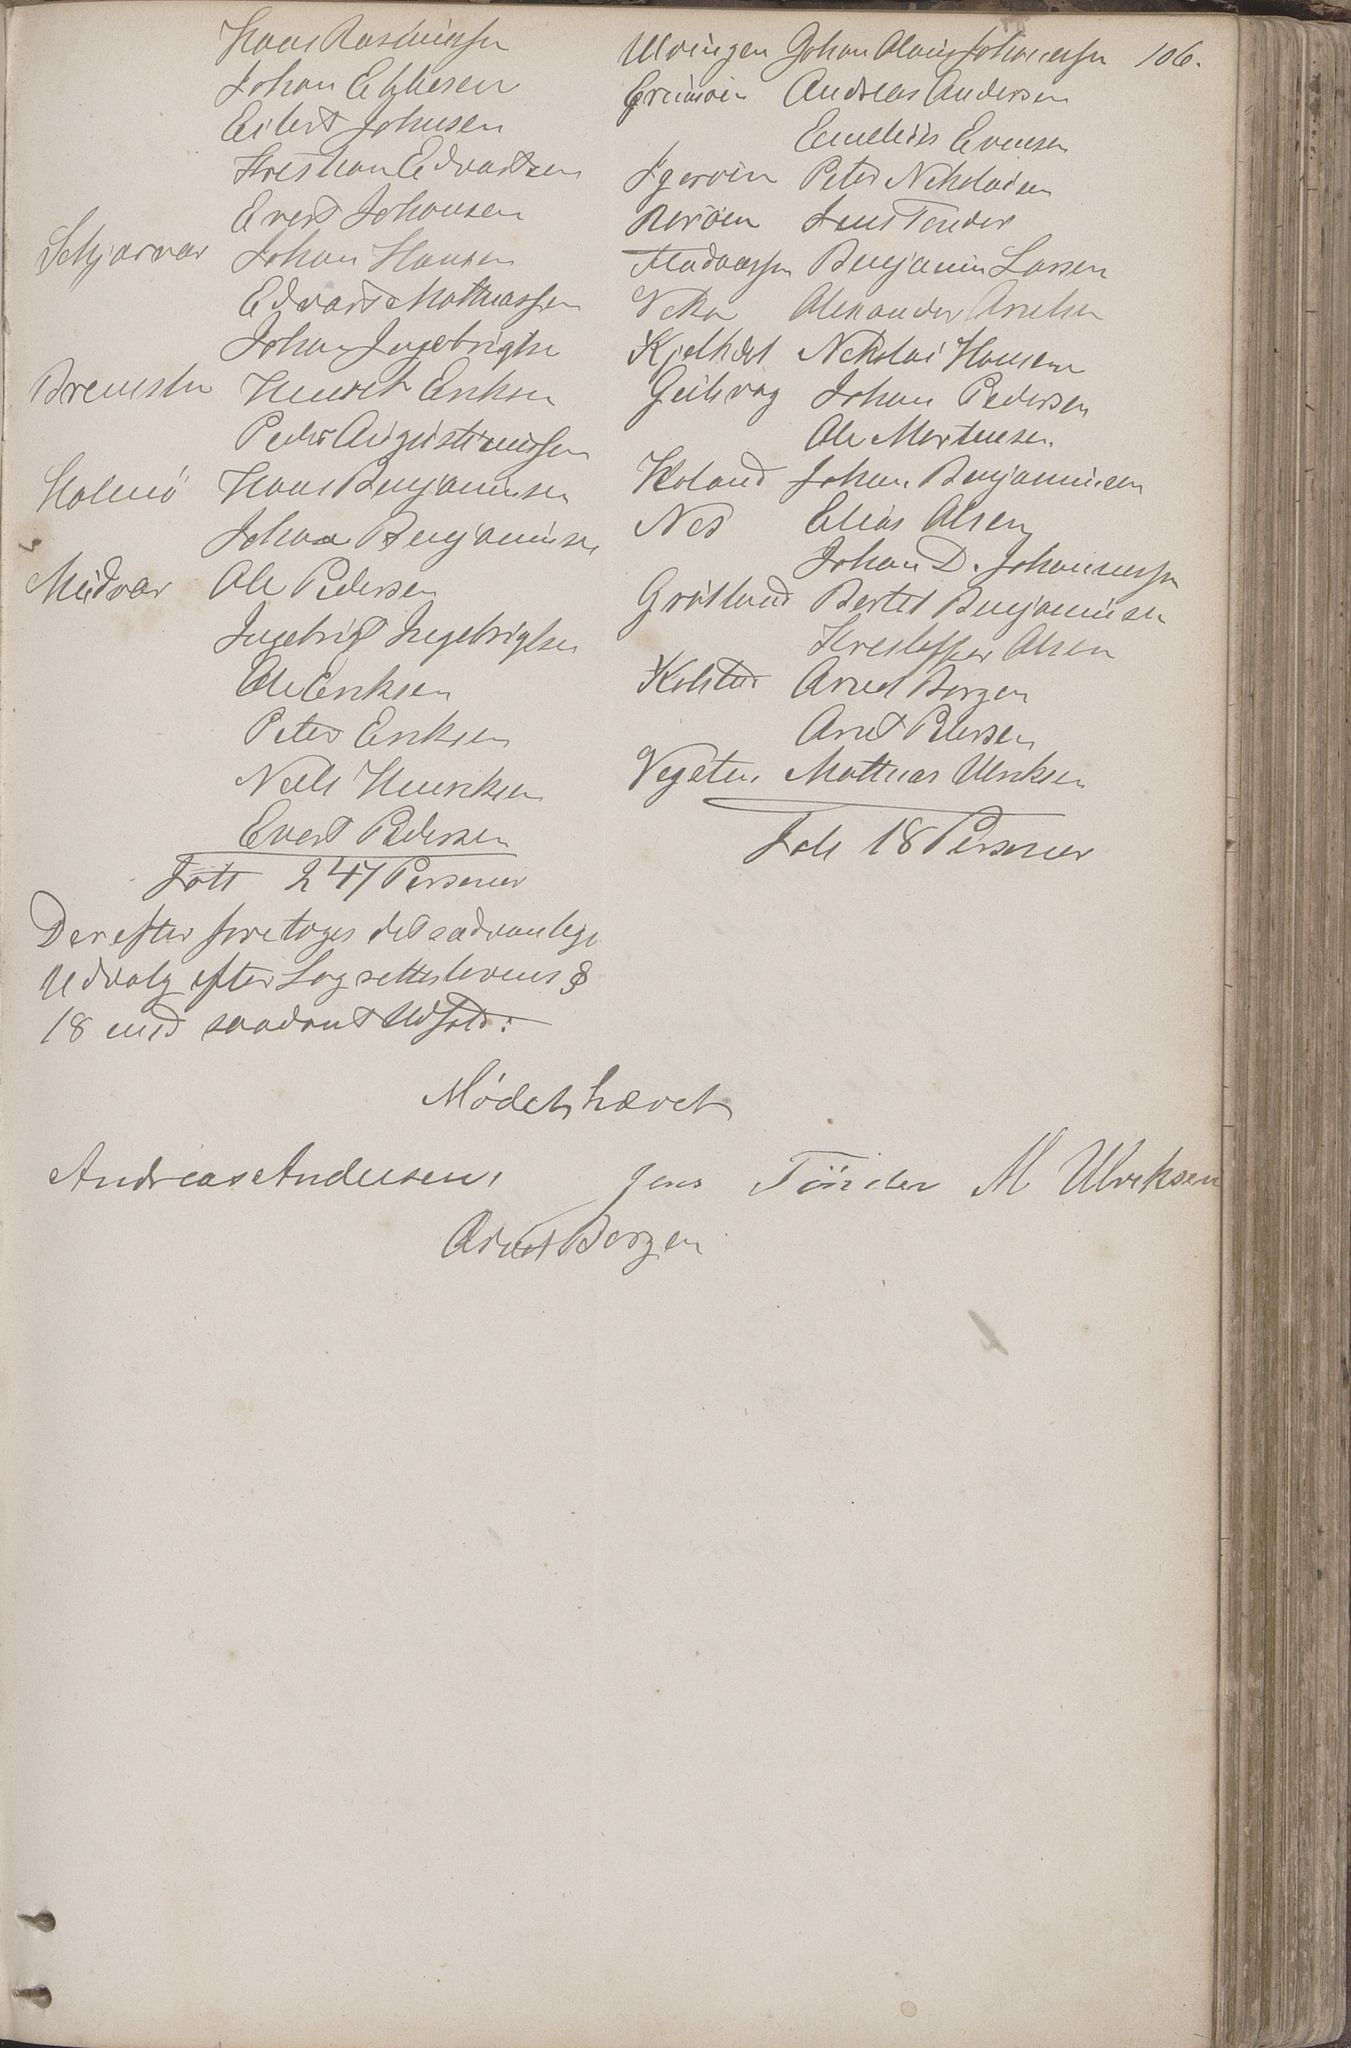 106.
Hans Rasmussen
Johan Ebbesen
Eilert Johnsen
Krestian Edvardsen
Evert Johansen
Schjærvær Johan Hansen
Edvard Mathiassen
Johan Ingebrigtsen
Bremsten Henrik Eriksen
Peder Augustinussen
Holmø Hans Benjaminsen
Johan Benjaminsen
Midvær Ole Pedersen
Ingebrigt Ingebrigtsen
Ole Eriksen
Peter Eriksen
Nils Henriksen
Evert Pedersen
Tols 247 Personer
Derefter foretoges det sædvanlige
Udvalg efter Lagretteslovens §
18 med saadant Udfald:
Ulvingen Johan Olaus Johannessen
Andreas Andersen
Evensen
Igerøen Peter Nikolaisen
Rørøen Jens Tønder
Benjamin Larsen
Alexander
Nikolai Hansen
Johan Pedersen
Ole Mortensen
Johan Benjaminsen
Nes Elias Olsen
Johan D. Johannessen
Grøtland Bertel Benjaminsen
Krestoffer Olsen
Arnt Borgen
Arnt Petersen
Vegsten Mathias Ulriksen
Tols 18 Personer
Mødet hævet
Andreas Andersen, Jens Tönder M Ulriksen
Arnt Borgen